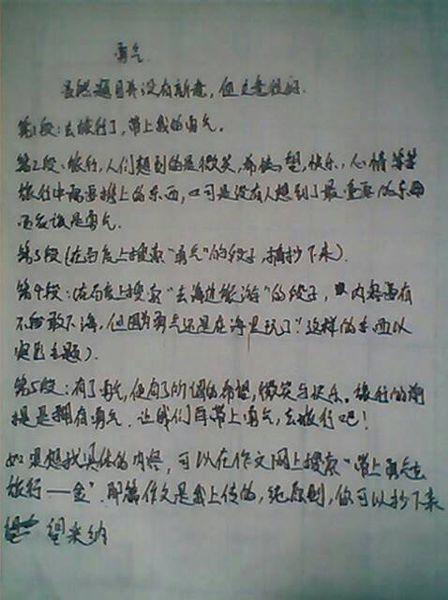 勇气
虽然题目并没有新意,但立意很好.
第1段:去旅行了,带上我的勇气。
第2段:旅行,人们想到的是微笑,希望,快乐,心情等等
旅行中需要携上的东西,口可是没有人想到了最重要的东西
而应该是勇气.
第3段(在百度上搜索“勇气”的段子,摘抄下来).
第4段:(在百度上搜索“去海边旅游”的段子,内容要有
不敢下海,但因为勇气还是在海里玩了”这样的东西以
突出主题).
第5段:有了勇气,便有了所谓的希望,微笑与快乐。旅行的前
提是拥有勇气.让我们带上勇气,去旅行吧!
如果想找具体的内容,可以在作文网上搜索“带上勇气去
旅行——金”.那篇作文是我上传的,纯原创,你可以抄下来
望采纳